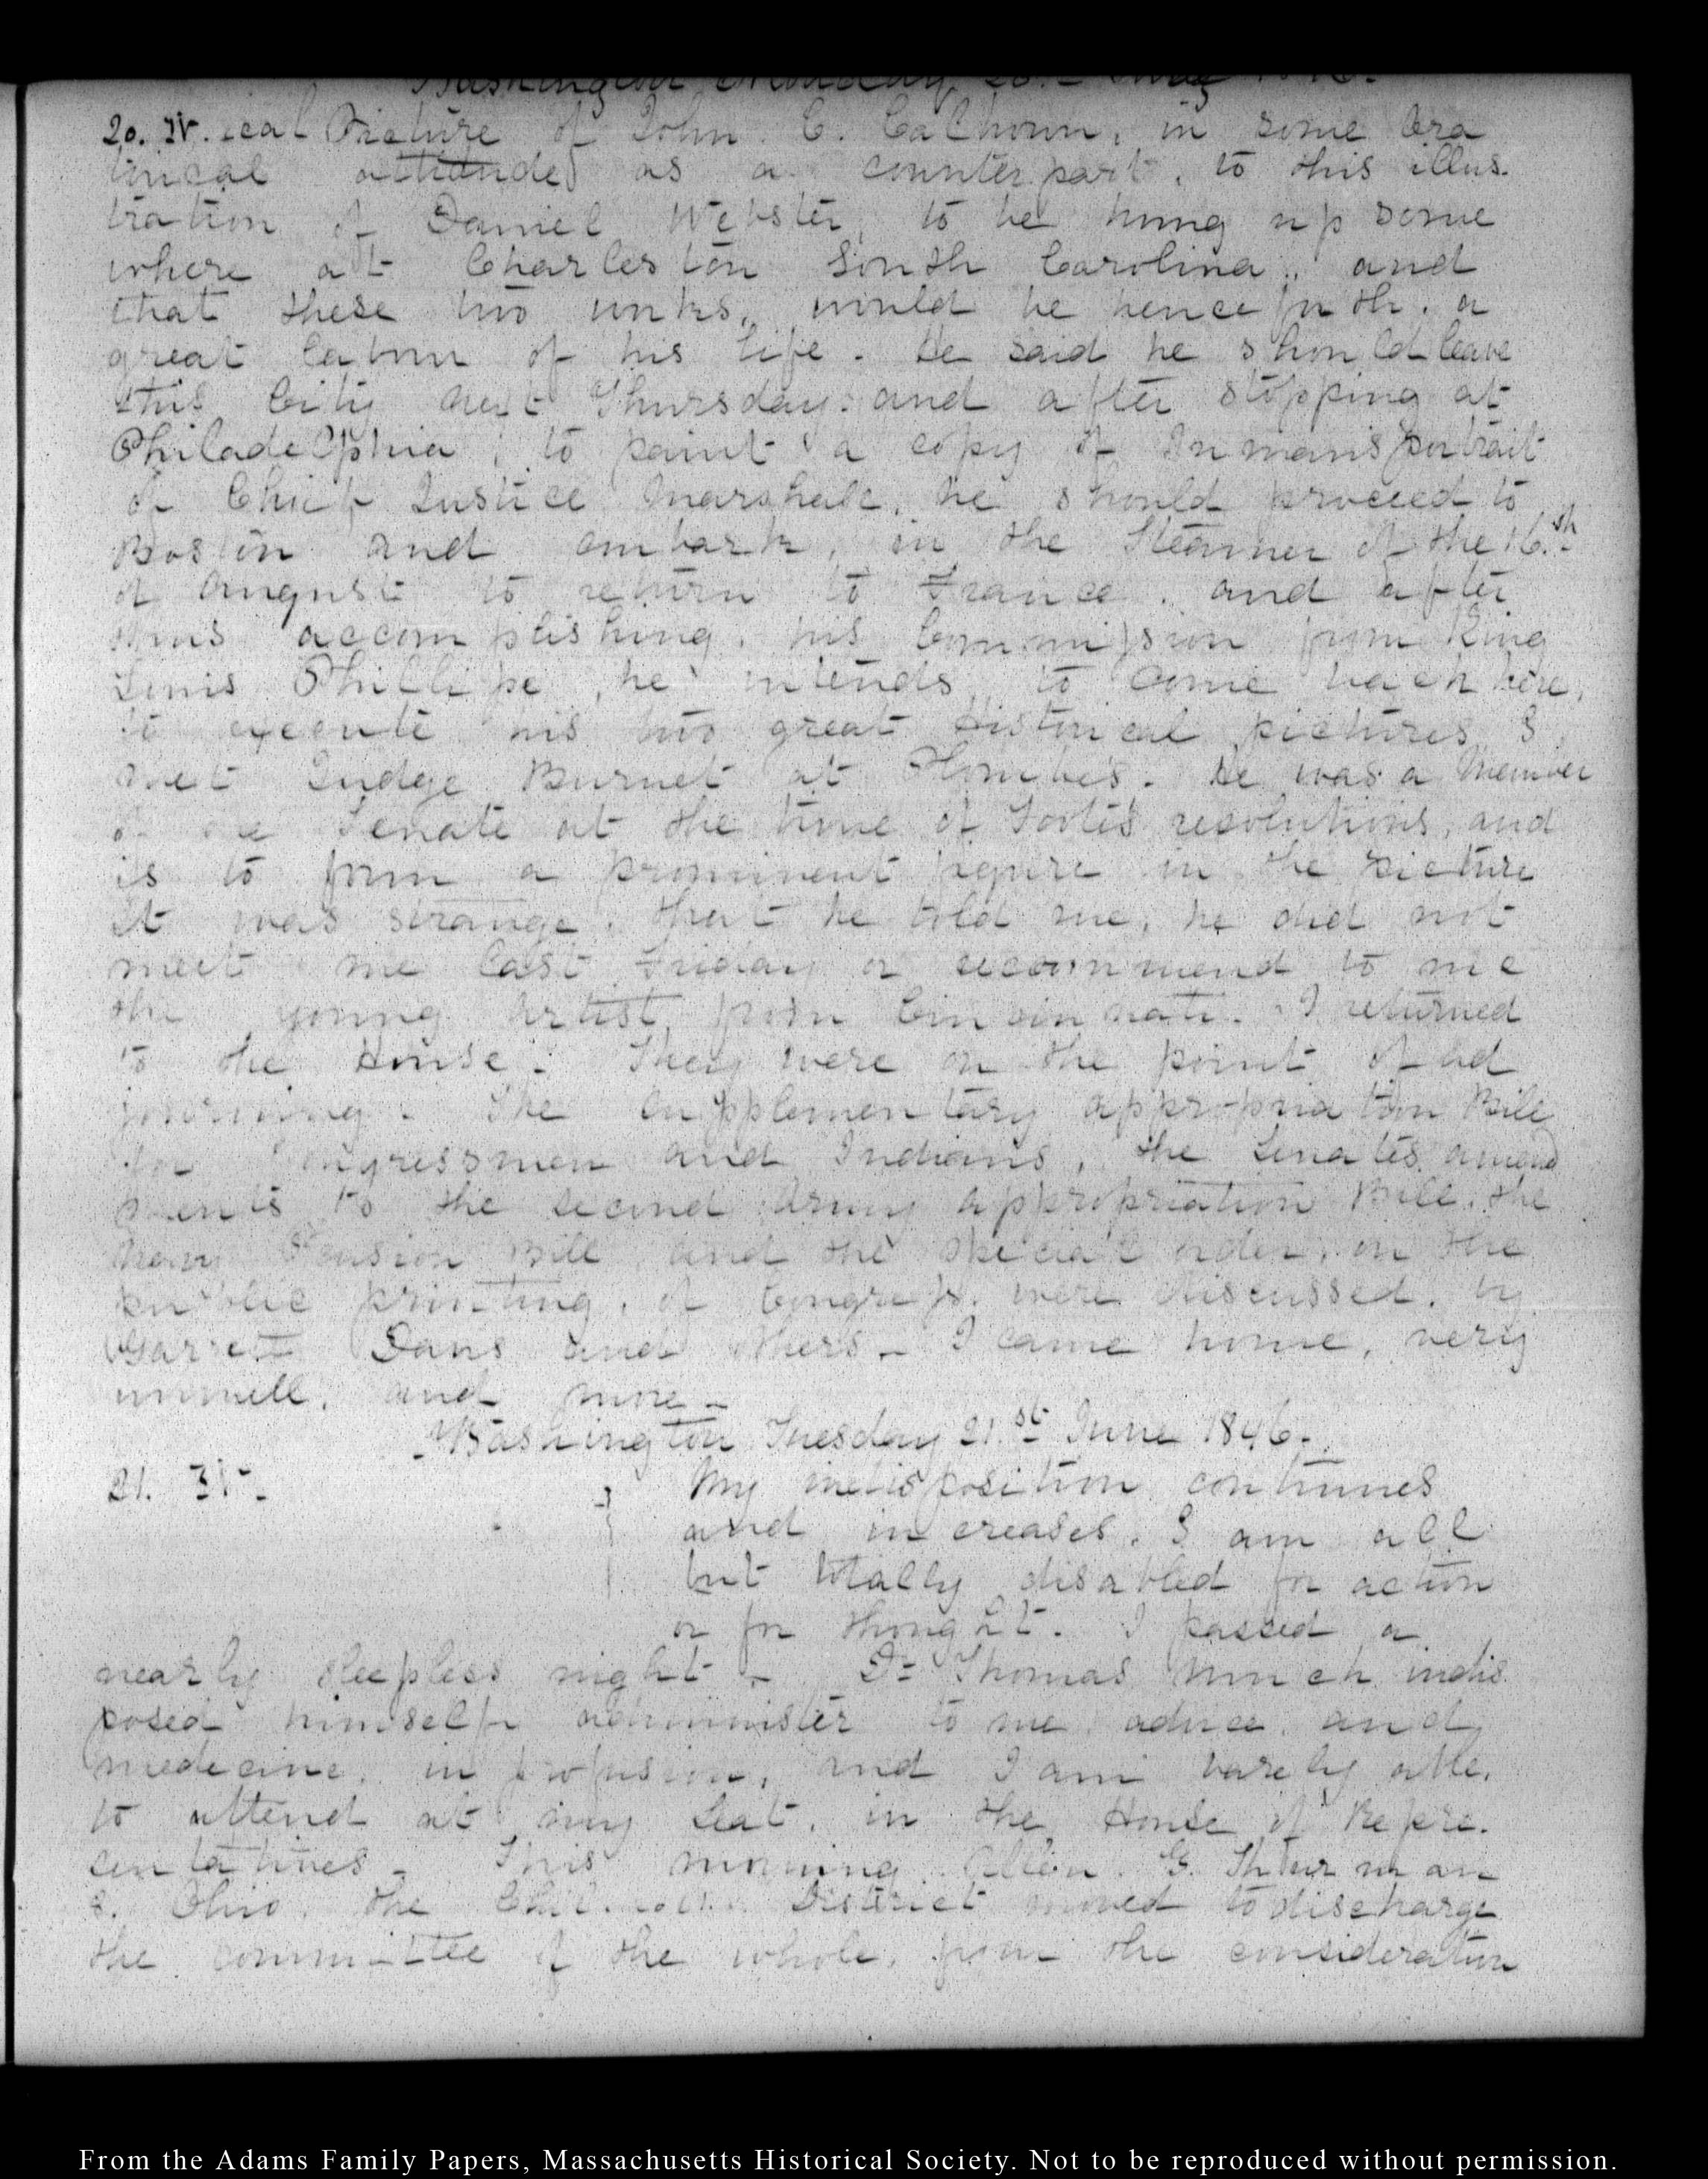 Washington Monday 20.
20. IV. ical Picture of John C. Calhoun, in some Ora
torical attitude as a counterpart, to this illus-
tration of Daniel Webster, to be hung up some
where at Charleston South Carolina, and
that these two works, would be henceforth, a
great labour of his life. He said he should leave
this City next Thursday and after stopping at
Philadelphia, to paint a copy of Inman's portrait
of Chief Justice Marshall, he should proceed to
Boston and embark, in the Steamer of the 16.th
of August to return to France, and after
thus accomplishing, his Commission from King
Louis Phillipe, he intends, to come back here,
to execute his two great Historical pictures I
met Judge Burnet at Plumbe's. He was a Member
of the Senate at the time of Foote's resolutions, and
is to form a prominent figure in the picture
It was strange, that he told me, he did not
meet me last Friday or recommend to me
the young Artist, from Cincinnati. I returned
to the House. They were on the point of ad
journing. The Supplementary appropriation Bill
for Congressmen and Indians, the Senate's amend
ments to the second Army appropriation Bill, the
Navy Pension Bill and the special order, on the
public printing, of Congress, were discussed, by
Garrett Davis and others. I came home, very
unwell, and more-
Washington Tuesday 21.st June 1846.
21. IV.
My indisposition continues
and increases. I am all
but totally disabled for action
or for thought. I passed a
nearly sleepless night - Dr Thomas much indis
posed himself administer to me advice, and
medecine, in profusion, and I am barely able,
to attend at my seat, in the House of Repre-
sentatives - This morning Allen G. Thurman
8. Ohio, the Chillicothe District moved to discharge
the committee of the whole, from the consideration
From the Adams Family Papers, Massachusetts Historical Society. Not to be reproduced without permission.